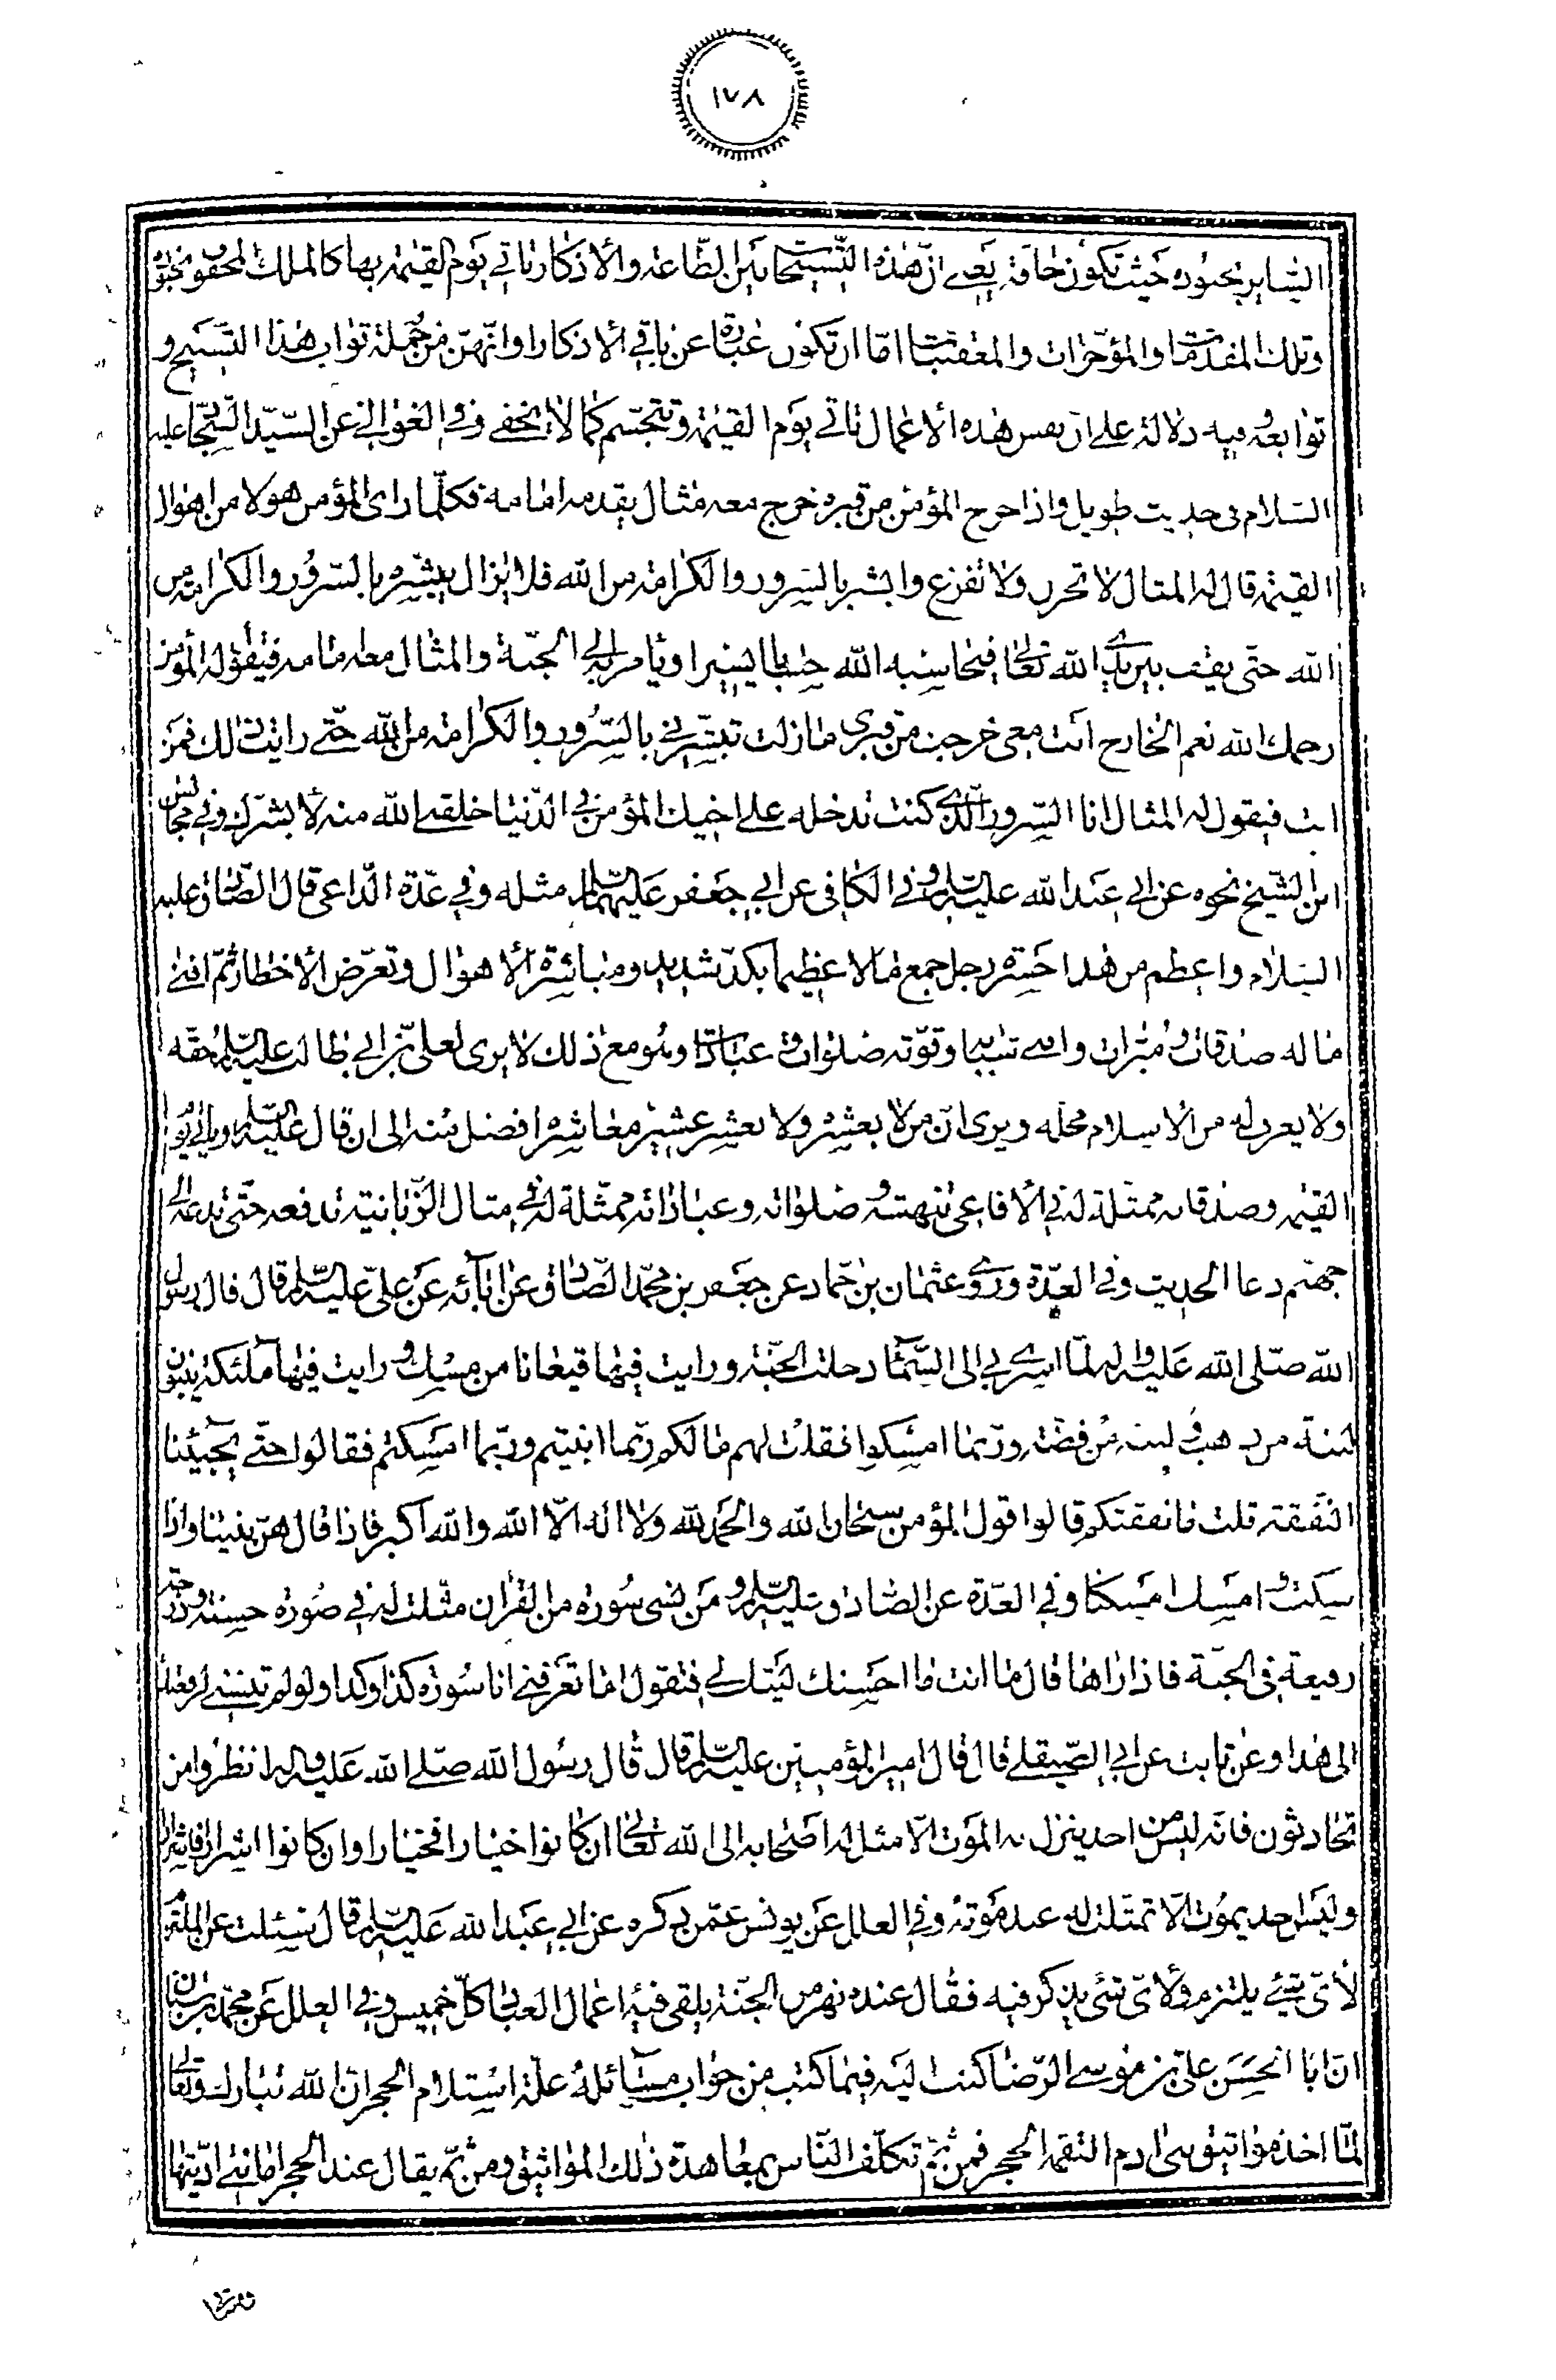 ١٧٨
الساير بجنوده حيث تكون حافة يعنى ان هذه التسبيحا بين الطاعة والأذكار تاتى يوم القيمة بها كالملك المحفوف بجنوده
وتلك المقدمات والمؤخرات والمعقبات امّا ان تكون عبارة عن باقى الأذكار او انّهنّ من جملة ثواب هذا التسبيح و
توابعه وفيه دلالة على ان نفس هذه الأعمال تاتى يوم القيمة وتتجسّم كما لا يخفى وفى الغوالى عن السيّد السجّاد عليه
السلام فى حديث طويل واذا خرج المؤمن من قبره خرج معه مثال يقدمه امامه فكلّما راى المؤمن هولا من اهوال
القيمة قال له المثال لا تحزن ولا تفزع وابشر بالسرور والكرامة من الله فلا يزال يبشّره بالسّرور والكرامة من
الله حتّى يقف بين يدى الله تعالى فيحاسبه الله حسابا يسيرا ويأمر به الى الجنّة والمثال معه امامه فيقول له المؤمن
رحمك الله نعم الخارج انت معى خرجت من قبرى ما زلت تبشّرنى بالسّرور والكرامة من الله حتّى رايت ذلك فمن
انت فيقول له المثال انا السّرور الّذى كنت تدخله على اخيك المؤمن فى الدّنيا خلقنى الله منه لأبشّرك وفى مجالس
ابن الشّيخ نحوه عن ابى عبد الله عليه السّلم وفى الكافى عن ابى جعفر عليهما السّلم مثله وفى عدّة الدّاعى قال الصّادق عليه
السلام واعظم من هذا حسرة رجل جمع مالا عظيما بكدّ شديد ومباشرة الأهوال وتعرّض الأخطار ثمّ افنى
ماله صدقات ومبرّات وافنى شبابه وقوّته صلوات وعبادات وهو مع ذلك لا يرى لعلىّ بن ابى طالب عليه السّلم حقّه
ولا يعرف له من الأسلام محلّه ويرى انّ من لا بعشره ولا بعشر عشير معاشره افضل منه الى ان قال عليه السّلم وياتى يوم
القيمة وصدقاته ممثّلة له فى الأفاعى تنهشه وصلواته وعباداته ممثّلة له فى مثال الزّبانية تدفعه حتّى تدعه الى
جهنّم دعا الحديث وفى العدّة وروى عثمان بن حمّاد عن جعفر بن محمّد الصّادق عن ابآئه عن علىّ عليه السّلم قال قال رسول
الله صلّى الله عليه واله لمّا اسرى بى الى السّمآء دخلت الجنّة ورايت فيها قيعانا من مسك ورايت فيها ملئكة يبنون
لبنة من ذهب ولبنة من فضّة وربّما امسكوا فقلت لهم ما لكم ربّما ابنيتم وربّما امسكتم فقالوا حتّى تجيئنا
النّفقة قلت ما نفقتكم قالوا قول المؤمن سبحان الله والحمد لله ولا اله الّا الله والله اكبر فاذا قال هنّ بنينا واذا
سكت وامسك امسكنا وفى العدّة عن الصّادق عليه السّلم ومن نسى سورة من القران مثّلت له فى صورة حسنة ودرجة
رفيعة فى الجنّة فاذا راها قال ما انت ما احسنك ليتك لى فتقول اما تعرفنى انا سورة كذا وكذا ولو لم تنسنى لرفعتك
الى هذا وعن ثابت عن ابى الصّيقل قال قال امير المؤمنين عليه السّلم قال قال رسول الله صلّى الله عليه واله انظروا من
تحادثون فانّه ليس من احد ينزل به الموت الّا مثل له اصحابه الى الله تعالى ان كانوا خيارا فخيارا وان كانوا اشرارا فاشرارا
وليس احد يموت الّا تمثّلت له عند موته وفى العلل عن يونس عمّن ذكره عن ابى عبد الله عليه السّلم قال سئلت عن الملتزم
لأىّ شئ يلتزم ولأىّ شئ يذكر فيه فقال عنده نهر من الجنّة يلقى فيه اعمال العباد كلّ خميس وفى العلل عن محمّد بن سنان
انّ ابا الحسن علىّ بن موسى الرّضا كتب اليه فيما كتب من جواب مسآئله علّة استلام الحجر انّ الله تبارك وتعالى
لمّا اخذ مواثيق بنى ادم التقمه الحجر فمن ثمّ تكلّف النّاس بمعاهدة ذلك المواثيق ومن ثمّ يقال عند الحجر امانتى ادّيتها